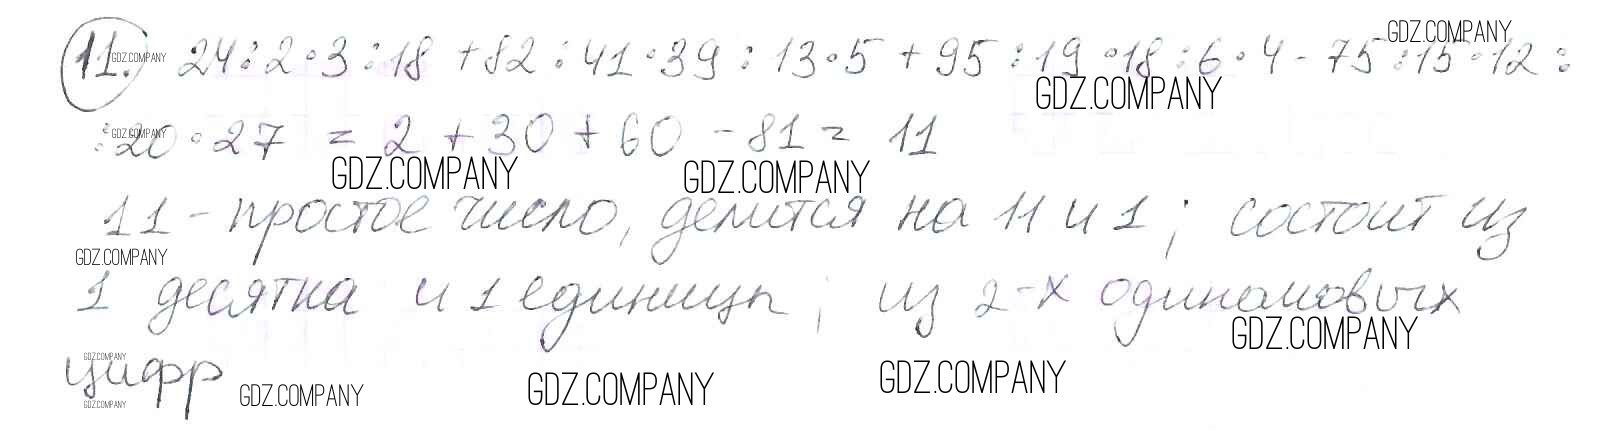 11. 24:2·3:18 +82:41·39:13·5+95:19·18:6·4-75:15·12:
:20·27 = 2 + 30 + 60 - 81 = 11
11 - простое число, делится на 11 и 1; состоит из
1 десятка и 1 единицы; из 2-х одинаковых
цифр
GDZ.COMPANY
GDZ.COMPANY
GDZ.COMPANY
GDZ.COMPANY
GDZ.COMPANY
GDZ.COMPANY
GDZ.COMPANY
GDZ.COMPANY
GDZ.COMPANY
GDZ.COMPANY
GDZ.COMPANY
GDZ.COMPANY
GDZ.COMPANY